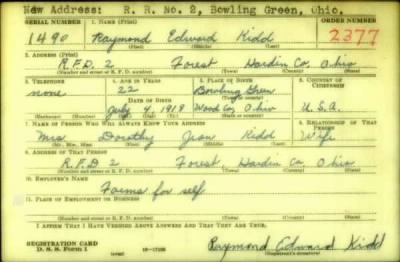 New Address: R. R. No. 2, Bowling Green, Ohio.
SERIAL NUMBER 1. NAME (Print) ORDER NUMBER
1490 Raymond Edward Kidd 2377
(First) (Middle) (Last)
2. ADDRESS (Print)
R.F.D. 2 Forest Hardin Co. Ohio
(Number and street or R. F. D. number) (Town) (County) (State)
3. TELEPHONE 4. AGE IN YEARS 5. PLACE OF BIRTH 6. COUNTRY OF CITIZENSHIP
none 22 Bowling Green
DATE OF BIRTH (Town or county)
July 4, 1918 Wood Co. Ohio U.S.A.
(Exchange) (Number) (Mo.) (Day) (Yr.) (State or country)
7. NAME OF PERSON WHO WILL ALWAYS KNOW YOUR ADDRESS 8. RELATIONSHIP OF THAT PERSON
Mrs. Dorothy Jean Kidd Wife
(Mr., Mrs., Miss) (First) (Middle) (Last)
9. ADDRESS OF THAT PERSON
R.F.D 2 Forest, Hardin Co. Ohio
(Number and street or R. F. D. number) (Town) (County) (State)
10. EMPLOYER'S NAME
Farms for self
11. PLACE OF EMPLOYMENT OR BUSINESS
(Number and street or R. F. D. number) (Town) (County) (State)
I AFFIRM THAT I HAVE VERIFIED ABOVE ANSWERS AND THAT THEY ARE TRUE.
REGISTRATION CARD
D. S. S. Form 1 Raymond Edward Kidd
(Registrant's signature)